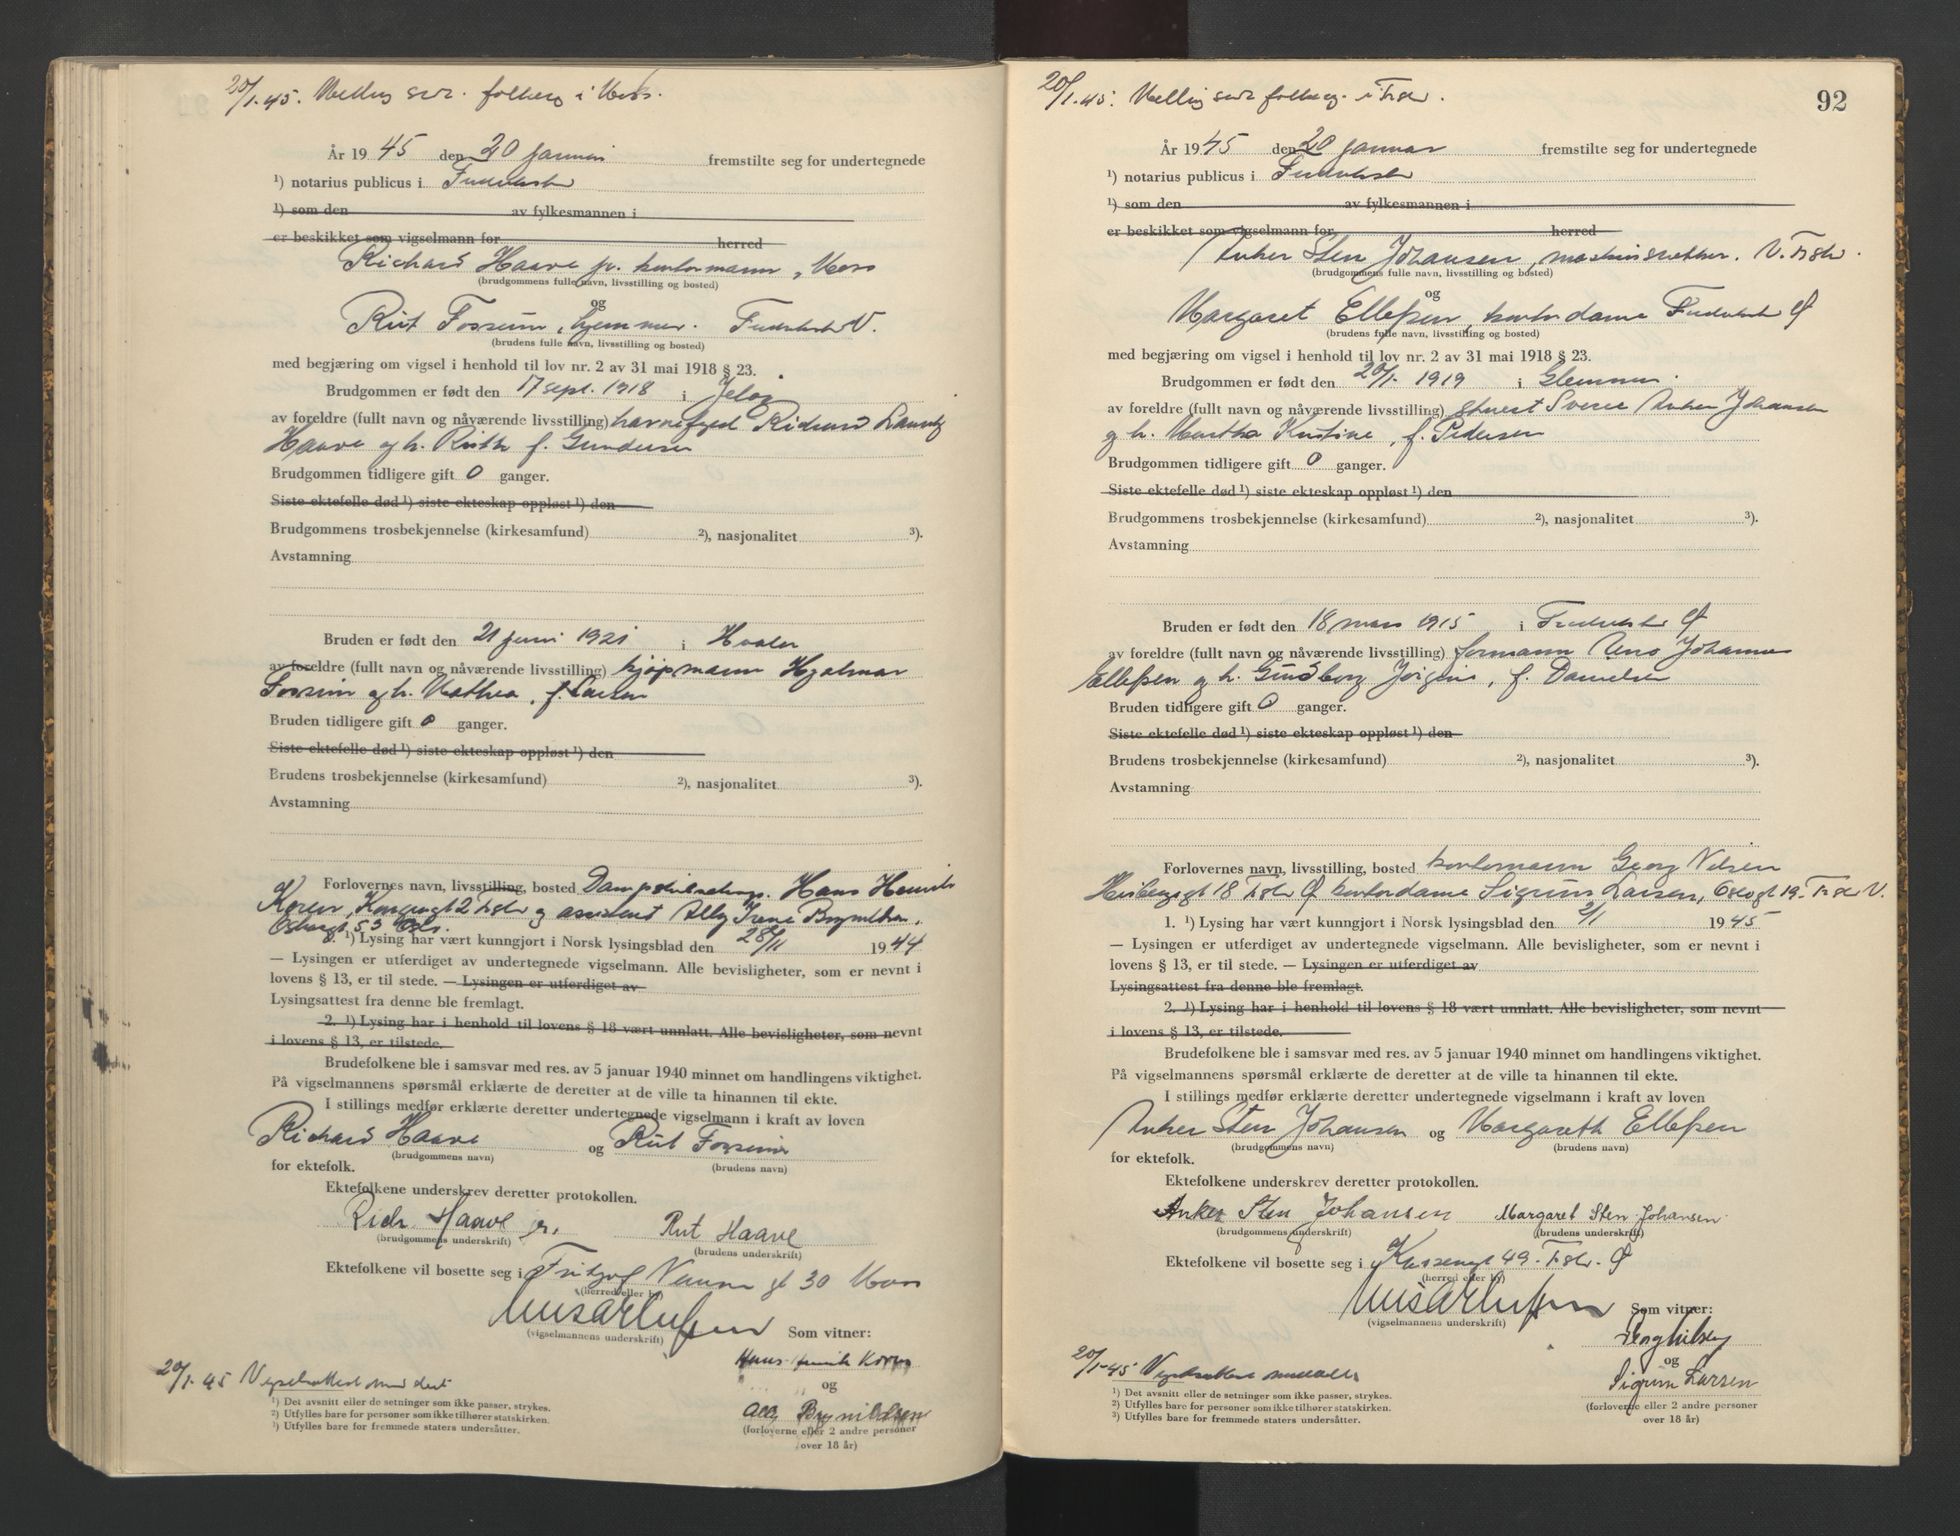 20/1.45. i Moss.
År 1945 den 20 januar fremstilte seg for undertegnede
¹) notarius publicus i
¹) som den av fylkesmannen i
er beskikket som vigselmann for herred
Richard Haave jr. kontormann, Moss
(brudgommens fulle navn, livsstilling og bosted)
og
Rut Fossum, hjemmev. V.
(brudens fulle navn, livsstilling og bosted)
med begjæring om vigsel i henhold til lov nr. 2 av 31 mai 1918 § 23.
Brudgommen er født den 17 sept. 1918 i Jeløy
av foreldre (fullt navn og nåværende livsstilling) havnefoged Lauritz
Haave og h. Ruth f. Gundersen
Brudgommen tidligere gift 0 ganger.
Siste ektefelle død ¹) siste ekteskap oppløst ¹) den
Brudgommens trosbekjennelse (kirkesamfund) ²), nasjonalitet ³).
Avstamning
Bruden er født den 21 juni 1921 i Hvaler
av foreldre (fullt navn og nåværende livsstilling) kjøpmann Hjalmar
Fossum og h. Mathea, f. Larsen
Bruden tidligere gift 0 ganger.
Siste ektefelle død ¹) siste ekteskap oppløst ¹) den
Brudens trosbekjennelse (kirkesamfund) ²), nasjonalitet ³).
Avstamning
Forlovernes navn, livsstilling, bosted Hans Henrik
Koren, 2 og assistent Ally Irene Brynildsen,
53 Oslo.
1. ¹) Lysing har vært kunngjort i Norsk lysingsblad den 28/11 1944
— Lysingen er utferdiget av undertegnede vigselmann. Alle bevisligheter, som er nevnt i
lovens § 13, er til stede. — Lysingen er utferdiget av
Lysingsattest fra denne ble fremlagt.
2. ¹) Lysing har i henhold til lovens § 18 vært unnlatt. Alle bevisligheter, som er nevnt
i lovens § 13, er tilstede.
Brudefolkene ble i samsvar med res. av 5 januar 1940 minnet om handlingens viktighet.
På vigselmannens spørsmål erklærte de deretter at de ville ta hinannen til ekte.
I stillings medfør erklærte deretter undertegnede vigselmann i kraft av loven
Richard Haave og Rut Fossum
(brudgommens navn) (brudens navn)
for ektefolk.
Ektefolkene underskrev deretter protokollen.
Rich. Haave jr. Rut Haave
(brudgommens underskrift) (brudens underskrift)
Ektefolkene vil bosette seg i Fritjof Nansens gt 30 Moss
(herred eller by)
(vigselmannens underskrift) Som vitner:
Hans Henrik Koren
og
Ally Brynildsen
(forloverne eller 2 andre personer
over 18 år)
20/1.45
¹) Det avsnitt eller de setninger som ikke passer, strykes.
²) Utfylles bare for personer som ikke tilhører statskirken.
³) Utfylles bare for fremmede staters undersåtter.
20/1.45. i Frstd.
92
År 1945 den 20 januar fremstilte seg for undertegnede
¹) notarius publicus i
¹) som den av fylkesmannen i
er beskikket som vigselmann for herred
Anker Sten Johansen, V. Frstd.
(brudgommens fulle navn, livsstilling og bosted)
og
Margaret Ellefsen, kontordame Ø
(brudens fulle navn, livsstilling og bosted)
med begjæring om vigsel i henhold til lov nr. 2 av 31 mai 1918 § 23.
Brudgommen er født den 20/1 1919 i Glemmen.
av foreldre (fullt navn og nåværende livsstilling) Sverre Anker Johansen
og h. Martha Kristine, f. Pedersen
Brudgommen tidligere gift 0 ganger.
Siste ektefelle død ¹) siste ekteskap oppløst ¹) den
Brudgommens trosbekjennelse (kirkesamfund) ²), nasjonalitet ³).
Avstamning
Bruden er født den 18 mars 1915 i Ø
av foreldre (fullt navn og nåværende livsstilling) formann Johannes
Ellefsen og h. Gudborg f. Danielsen
Bruden tidligere gift 0 ganger.
Siste ektefelle død ¹) siste ekteskap oppløst ¹) den
Brudens trosbekjennelse (kirkesamfund) ²), nasjonalitet ³).
Avstamning
Forlovernes navn, livsstilling, bosted kontormann Georg Nilsen
18 Frstd Ø kontordame Sigrun Larsen, Oslogt 19. Frstd V.
1. ¹) Lysing har vært kunngjort i Norsk lysingsblad den 2/1 1945
— Lysingen er utferdiget av undertegnede vigselmann. Alle bevisligheter, som er nevnt i
lovens § 13, er til stede. — Lysingen er utferdiget av
Lysingsattest fra denne ble fremlagt.
2. ¹) Lysing har i henhold til lovens § 18 vært unnlatt. Alle bevisligheter, som er nevnt
i lovens § 13, er tilstede.
Brudefolkene ble i samsvar med res. av 5 januar 1940 minnet om handlingens viktighet.
På vigselmannens spørsmål erklærte de deretter at de ville ta hinannen til ekte.
I stillings medfør erklærte deretter undertegnede vigselmann i kraft av loven
Anker Sten Johansen og Margareth Ellefsen
(brudgommens navn) (brudens navn)
for ektefolk.
Ektefolkene underskrev deretter protokollen.
Anker Sten Johansen Margaret Sten Johansen
(brudgommens underskrift) (brudens underskrift)
Ektefolkene vil bosette seg i 49. Frstd. Ø
(herred eller by)
(vigselmannens underskrift) Som vitner:
Georg Nilsen
og
Sigrun Larsen
(forloverne eller 2 andre personer
over 18 år)
20/1-45
¹) Det avsnitt eller de setninger som ikke passer, strykes.
²) Utfylles bare for personer som ikke tilhører statskirken.
³) Utfylles bare for fremmede staters undersåtter.